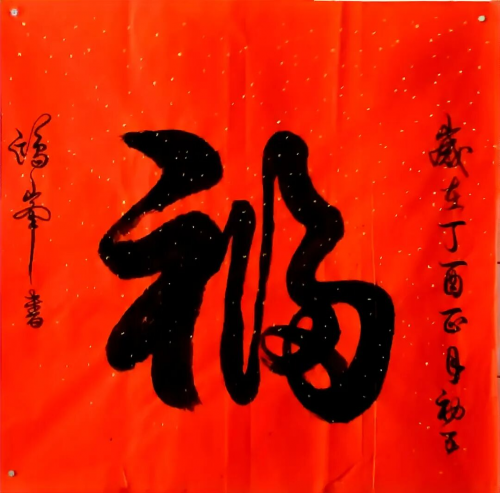 歲在丁酉正月初五
福
鴻峯書